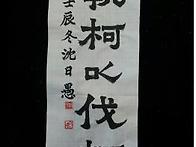 執柯以伐柯
壬辰冬沈日愚